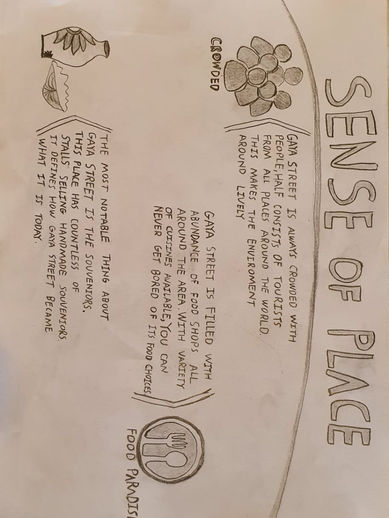 SENSE OF PLACE
CROWDED
GAYA STREET IS ALWAYS CROWDED WITH
PEOPLE, HALF CONSISTS OF TOURISTS
FROM ALL PLACES AROUND THE WORLD.
THIS MAKES THE ENVIROMENT
AROUND LIVELY
GAYA STREET IS FILLED WITH
ABUNDANCE OF FOOD SHOPS ALL
AROUND THE AREA WITH VARIETY
OF CUISINES AVAILABLE, YOU CAN
NEVER GET BORED OF ITS FOOD CHOICES
FOOD PARADIS
THE MOST NOTABLE THING ABOUT
GAYA STREET IS THE SOUVENIRS.
THIS PLACE HAS COUNTLESS OF
STALLS SELLING HANDMADE SOUVENIRS.
IT DEFINES HOW GAYA STREET BECAME
WHAT IT IS TODAY.